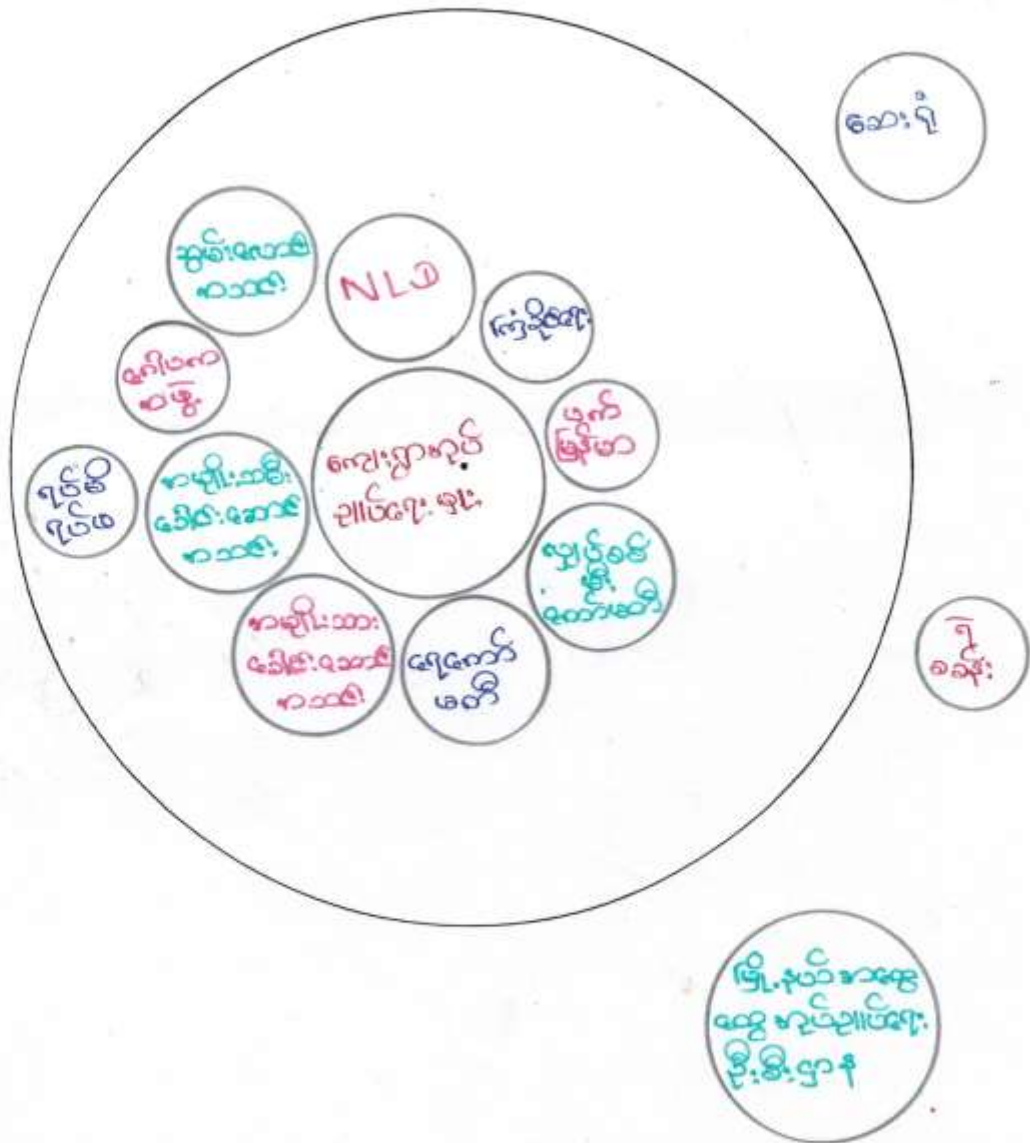 ဆေးရုံ
ဆွမ်းလောင်း
အသင်း
NLD
ကြံ့ခိုင်ရေး
ဂေါပက
အဖွဲ့
ဖက်
မြန်မာ
ကျေးရွာအုပ်
ချုပ်ရေးမှူး
ရပ်မိ
ရပ်ဖ
အမျိုးသမီး
ခေါင်းဆောင်
အသင်း
လျှပ်စစ်
မီး
ကော်မတီ
အမျိုးသား
ခေါင်းဆောင်
အသင်း
ရေကော်
မတီ
ရဲ
စခန်း
မြို့နယ်အထွေ
ထွေအုပ်ချုပ်ရေး
ဦးစီးဌာန